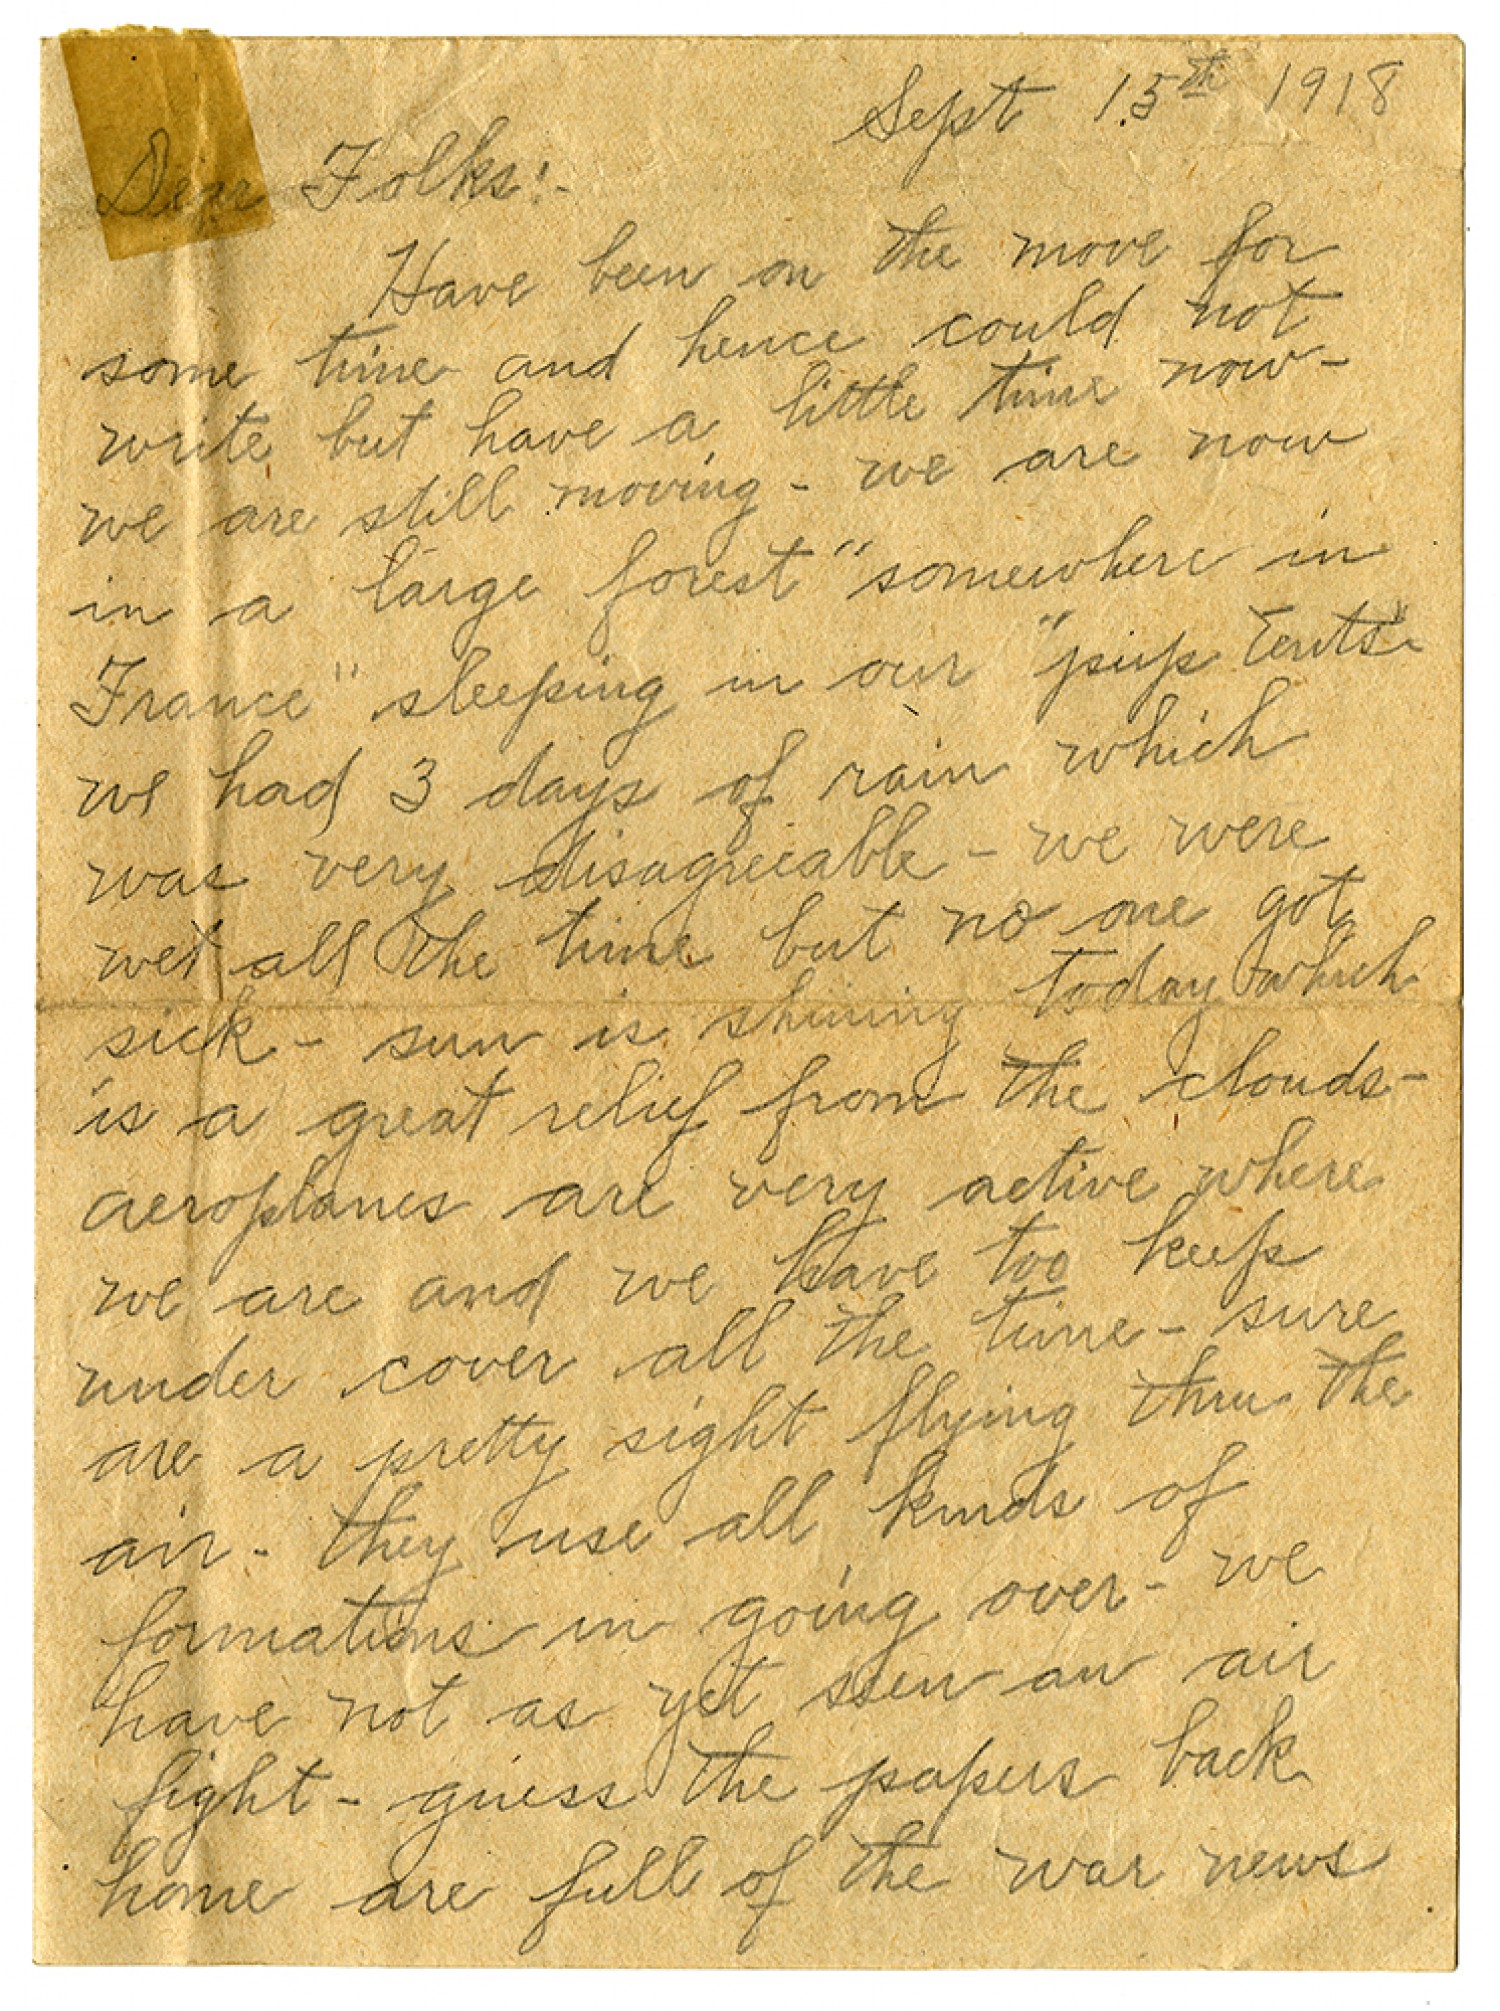 Sept 15th 1918
Dear Folks:-
Have been on the move for
some time and hence could not
write but have a little time now-
we are still moving - we are now
in a large forest "somewhere in
France" sleeping in our "pup tents"-
we had 3 days of rain which
was very disagreeable - we were
wet all the time but no one got
sick - sun is shining today which
is a great relief from the clouds-
aeroplanes are very active where
we are and we have too keep
under cover all the time - sure
are a pretty sight flying thru the
air - they use all kinds of
formations in going over - we
have not as yet seen an air
fight - guess the papers back
home are full of the war news